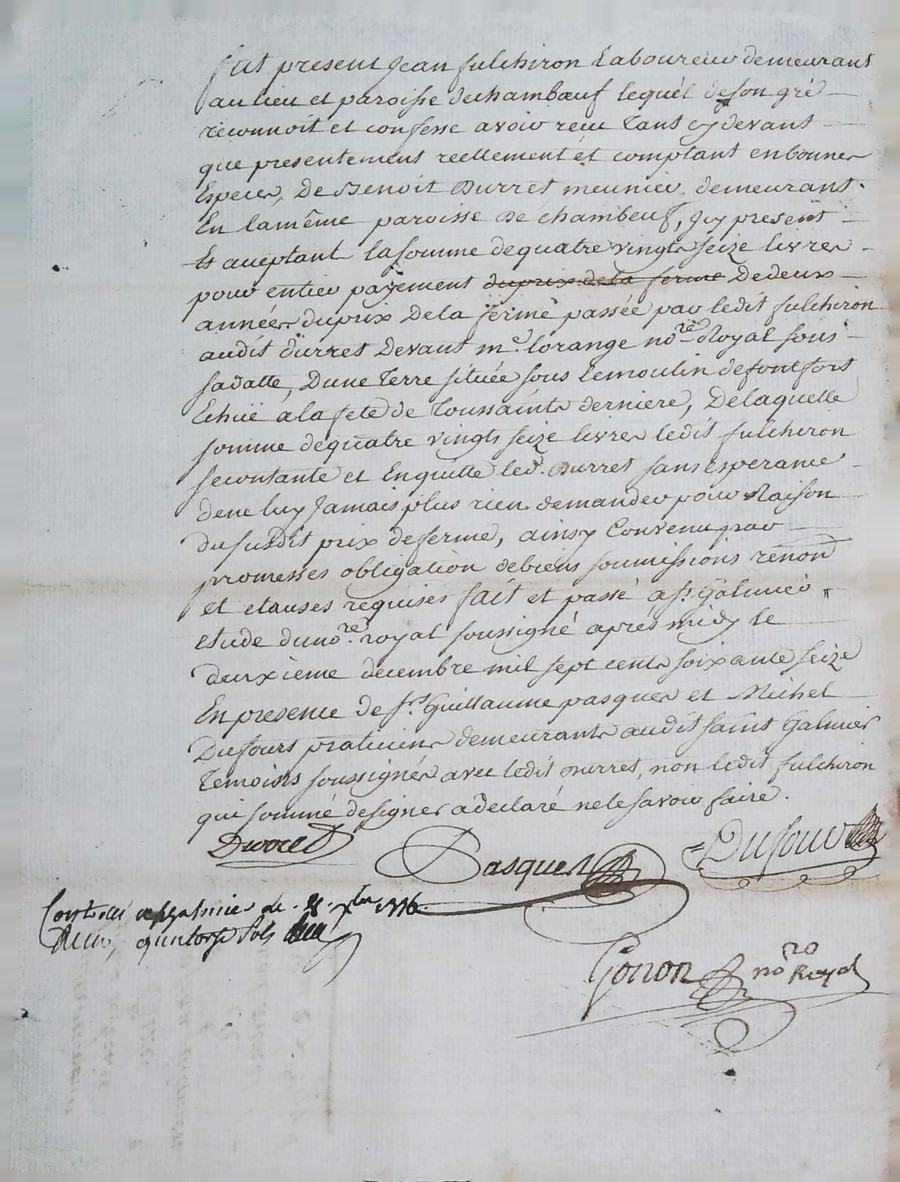 fut present Jean fulchiron Laboureur demeurant
au lieu et paroisse de chambœuf lequel de son gré
reconnoit et confesse avoir reçu tant cy devant
que presentement reellement et comptant en bonnes
Especes, De Benoit Durret meunier demeurant
En la même paroisse De chambeuf, Icy present
Et aceptant la somme de quatre vingts seize livres
pour entier payement du prix de la ferme De deux
années du prix De la ferme passée par ledit fulchiron
audit durret Devant me. lorange nore. Royal sous
sa datte, D'une Terre située sous le moulin de fontfort
Echüe a la fete de Toussaints derniere, De laquelle
somme de quatre vingts seize livres ledit fulchiron
se contante et En quitte led. Durret sans esperance
de ne luy Jamais plus rien demander pour Raison
du susdit prix de ferme, ainsy Convenu par
promesses obligation de biens soumissions renond
et clauses requises fait et passé a st. Galmier
etude du nore. royal soussigné après midy le
deuxième decembre mil sept cents soixante seize
En presence de sr. Guillaume pasquer et Michel
Dufours praticiens demeurants audit saint Galmier
Temoins soussignés avec ledit Durret, non ledit fulchiron
qui sommé de signer a declaré ne le savoir faire.
Durret
Pasquer Dufour
Controllé a st galmier le 8. xbre 1776
Reçu, quatorze sols
Gonon nore Royal